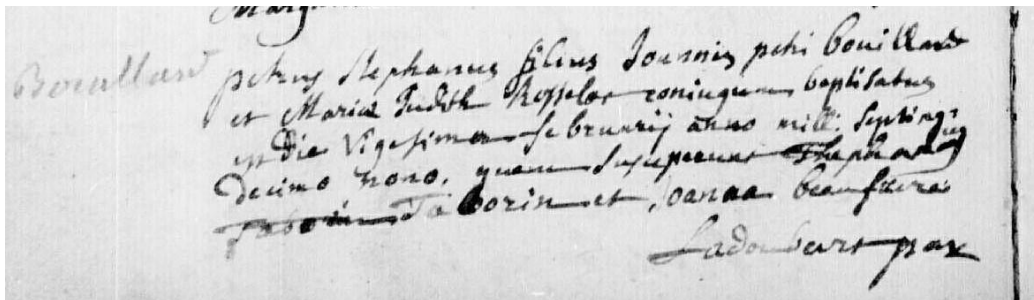 Bouillard
petrus stephanus filius Joannis petri bouillard
et Mariæ Judith Rosselos coniugum baptisatus
est Die Vigesima februarij anno mill: septing:
Decimo nono. quem susceperunt Stephanus
Taborin et Joanna beaufrere
Ladoubart par